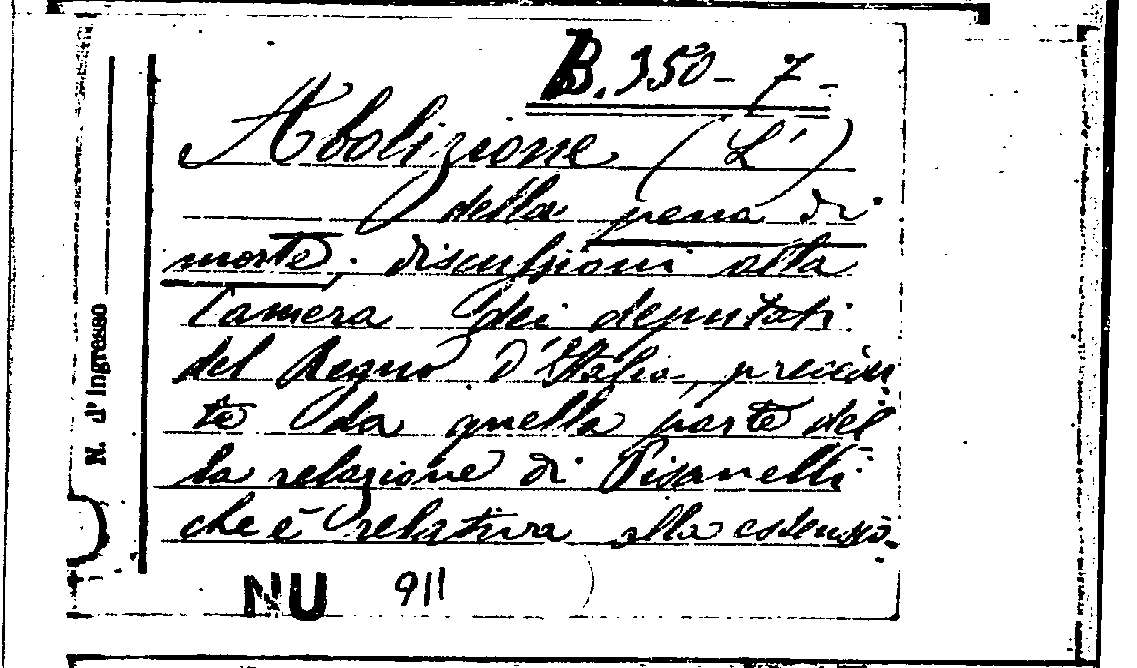 B. 350 - 7 -
Abolizione (L')
della pena di
morte; discussioni alla
Camera dei deputati
del Regno d'Italia, precedu
ta da quella parte del
la relazione di Pisanelli
che è relativa alla estensio.
N. d'Ingresso
NU 911